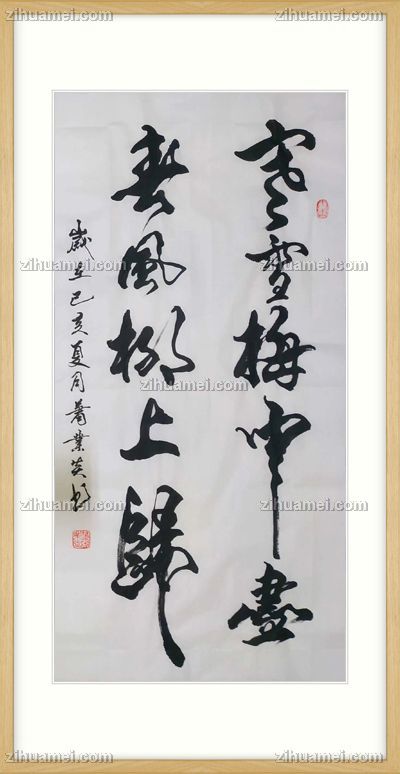 zihuamei.com zihuamei.com
寒雪梅中盡
春風柳上歸
歲在己亥夏月
業英
zihuamei.com
zihuamei.com zihuamei.com
zihuamei.com
zihuamei.com zihuamei.com
zihuamei.com
zihuamei.com zihuamei.com